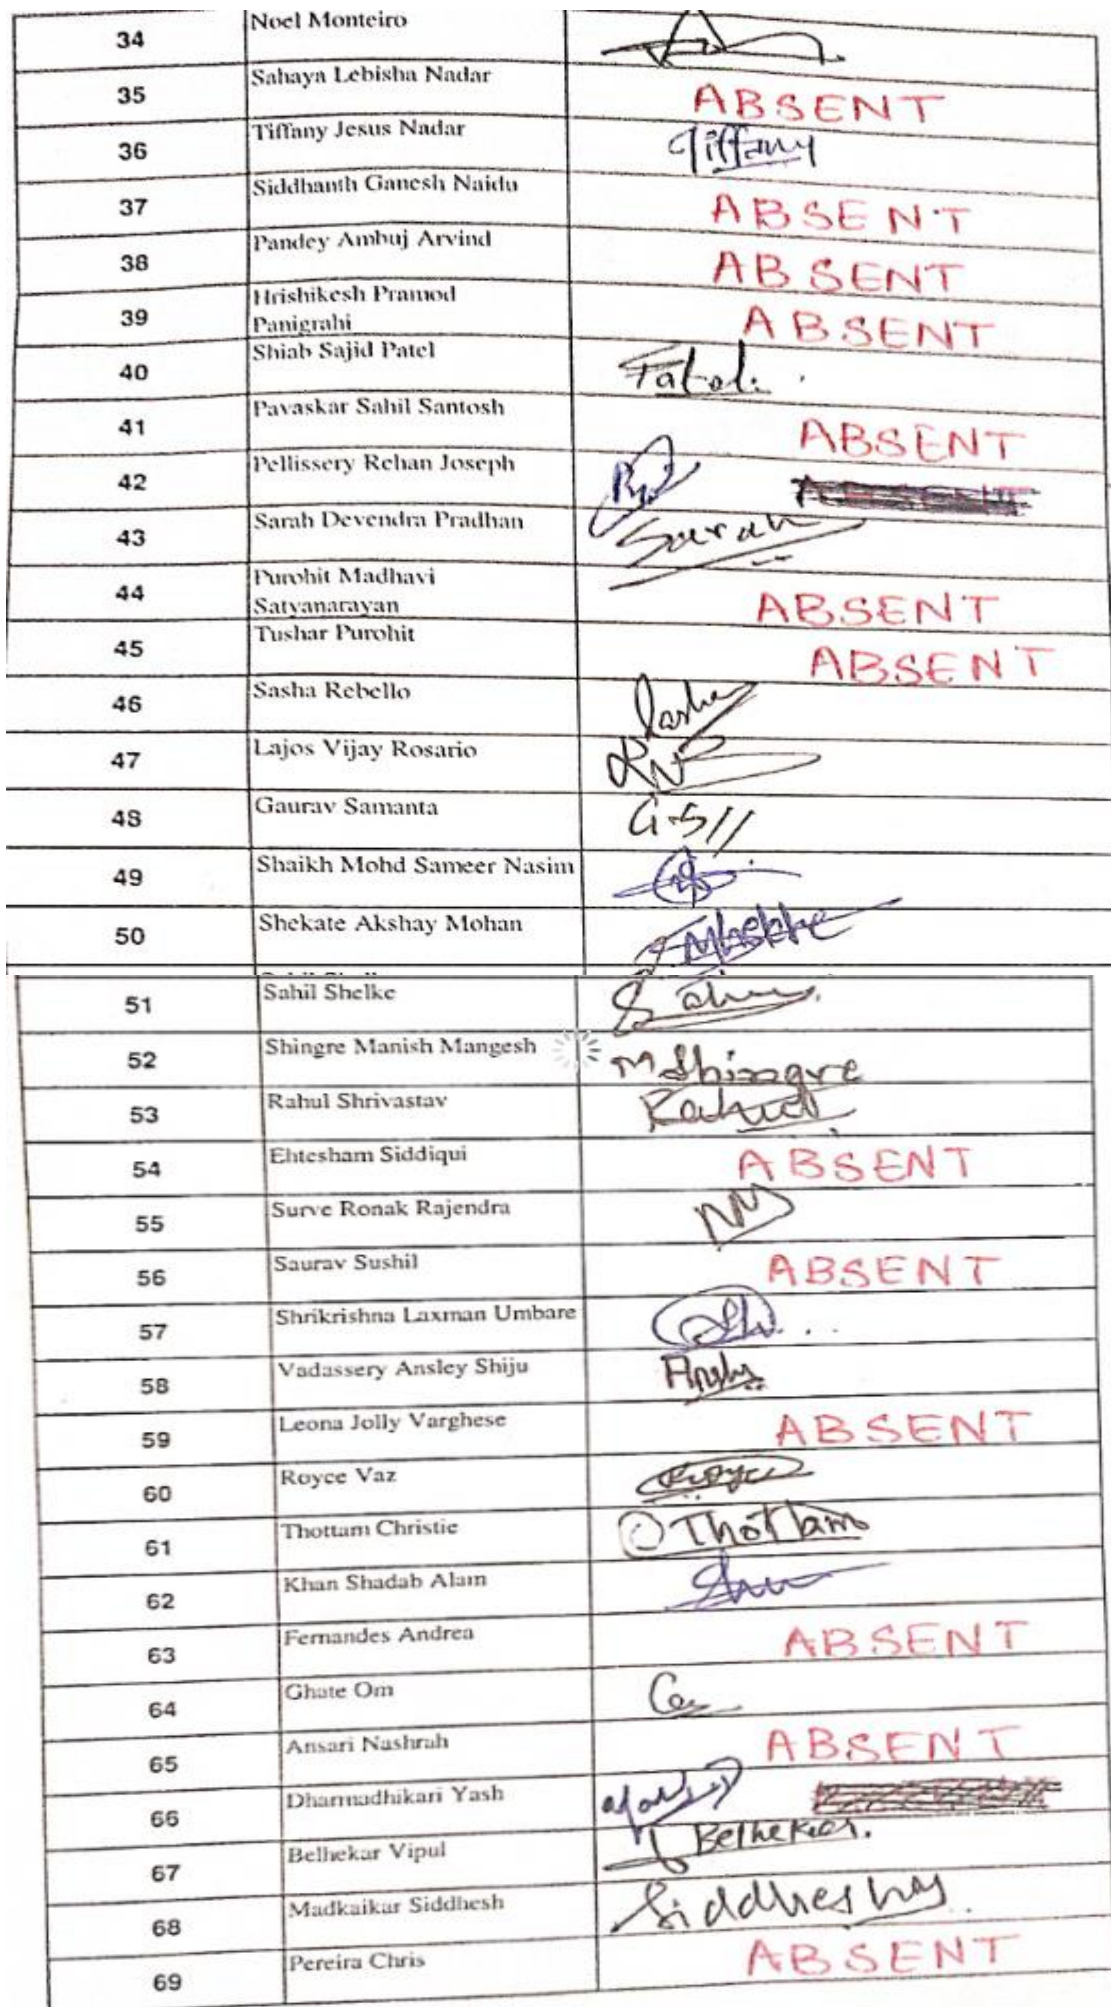 34 Noel Monteiro
35 Sahaya Lebisha Nadar ABSENT
36 Tiffany Jesus Nadar Tiffany
37 Siddhanth Ganesh Naidu ABSENT
38 Pandey Ambuj Arvind ABSENT
39 Hrishikesh Pramod
Panigrahi ABSENT
40 Shiab Sajid Patel
41 Pavaskar Sahil Santosh ABSENT
42 Pellissery Rehan Joseph
43 Sarah Devendra Pradhan Sarah
44 Purohit Madhavi
Satyanarayan ABSENT
45 Tushar Purohit ABSENT
46 Sasha Rebello Sasha
47 Lajos Vijay Rosario
48 Gaurav Samanta G.S//
49 Shaikh Mohd Sameer Nasim
50 Shekate Akshay Mohan
51 Sahil Shelke
52 Shingre Manish Mangesh MShingre
53 Rahul Shrivastav Rahul
54 Ehtesham Siddiqui ABSENT
55 Surve Ronak Rajendra
56 Saurav Sushil ABSENT
57 Shrikrishna Laxman Umbare
58 Vadassery Ansley Shiju
59 Leona Jolly Varghese ABSENT
60 Royce Vaz Royce
61 Thottam Christie Thottam
62 Khan Shadab Alam
63 Fernandes Andrea ABSENT
64 Ghate Om
65 Ansari Nashrah ABSENT
66 Dharmadhikari Yash
67 Belhekar Vipul Belhekar.
68 Madkaikar Siddhesh
69 Pereira Chris ABSENT